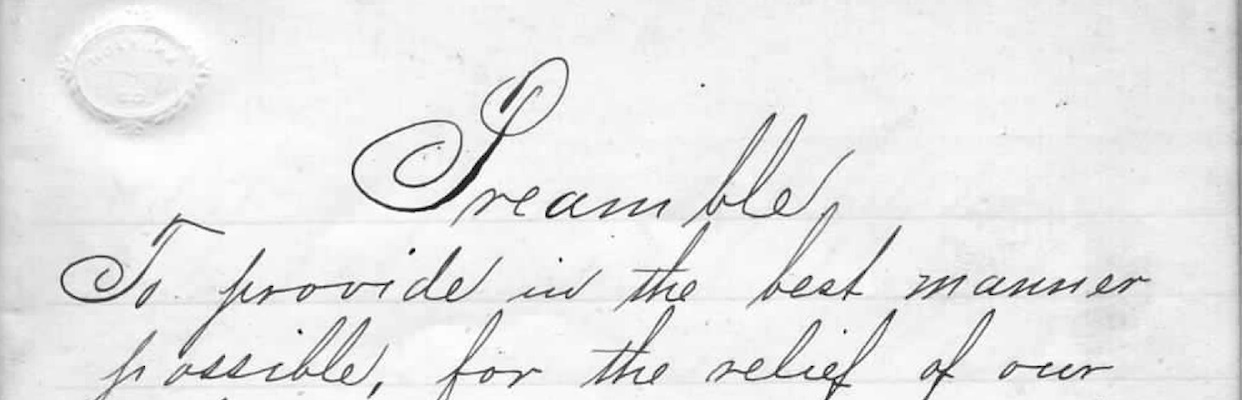 Preamble,
To provide in the best manner
possible, for the relief of our